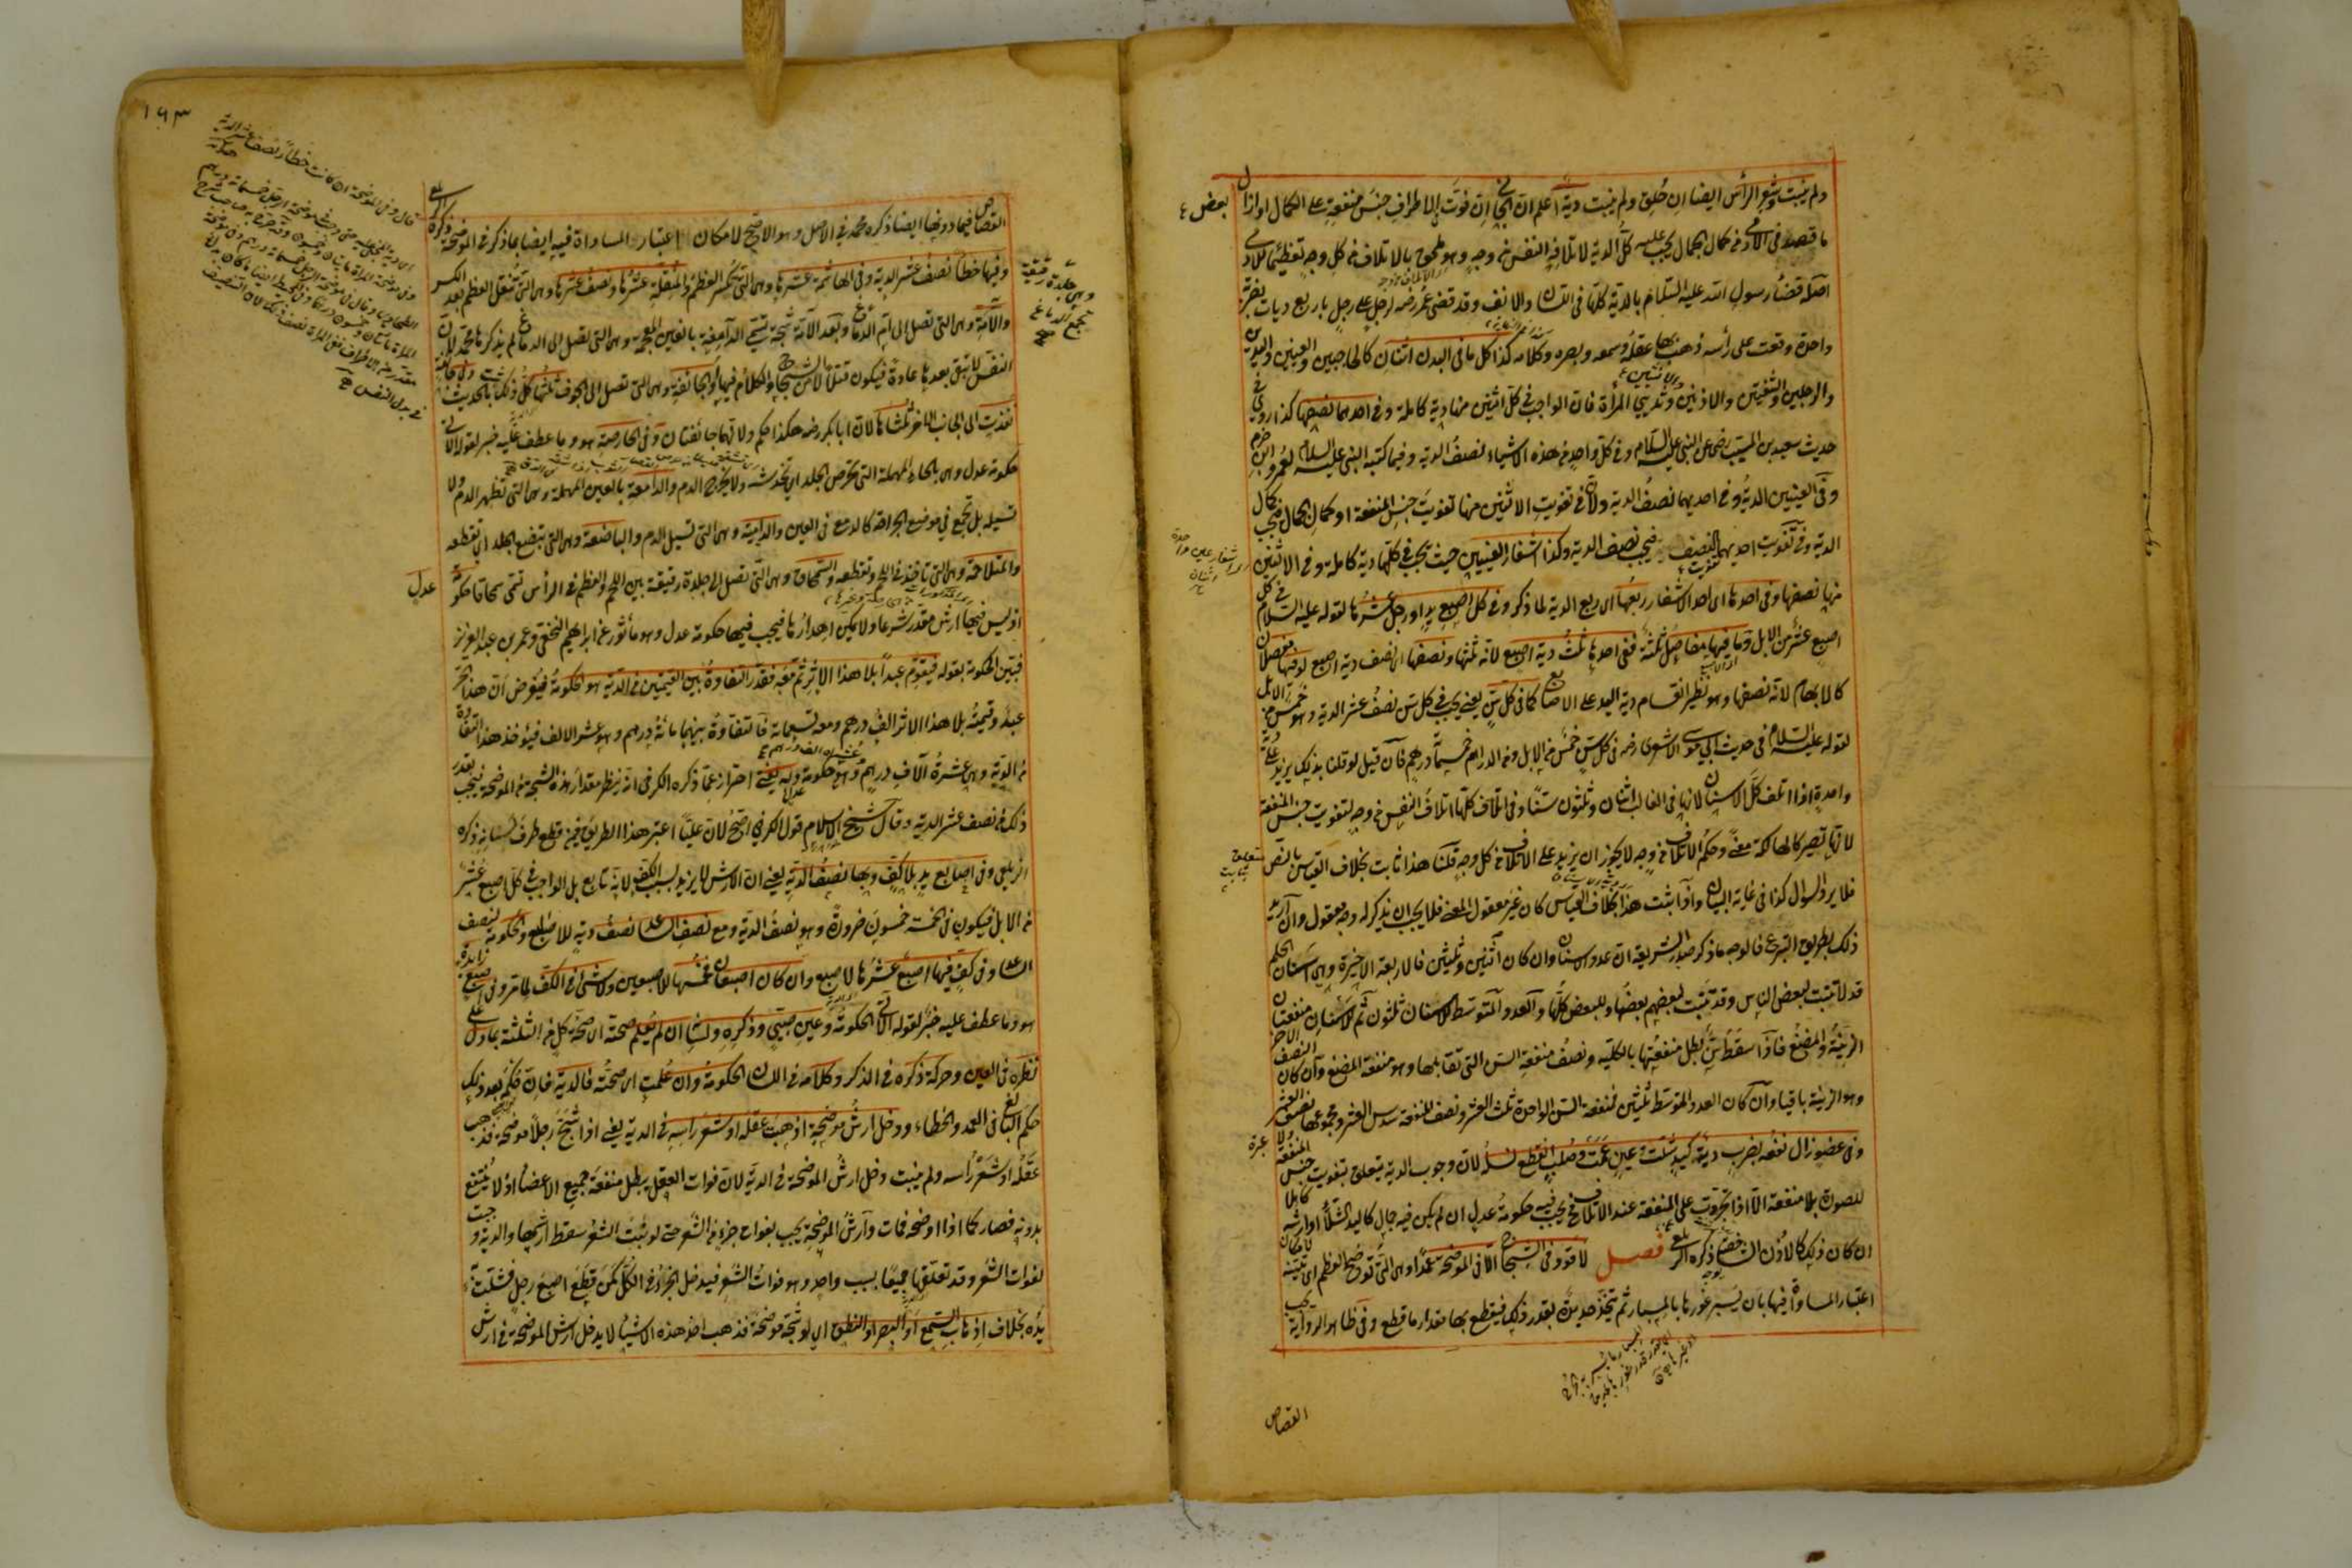 ولم ينبت وشعر الرأس ايضا ان حلق ولم ينبت دية اعلم ان الجاني ان فوت الاطراف جنس منفعة على الكمال او ازال
بعض
ما قصد في الآدمي من كمال الجمال يجب عليه كل الدية لاتلافه النفس من وجه وهو ملحق بالاتلاف من كل وجه تعظيما للآدمي
اصله قضاء رسول الله عليه السلام بالدية كلها في اللسان والانف وقد قضى عمر رضه لرجل على رجل باربع ديات بضربة
واحدة وقعت على رأسه ذهب بها عقله وسمعه وبصره وكلامه كذا كل ما في البدن اثنان كالحاجبين والعينين واليدين
والرجلين والشفتين والاذنين وثديي المرأة فان الواجب في كل اثنين منها دية كاملة وفي احدهما نصفها كذا روي في
حديث سعيد بن المسيب رضه عن النبي عليه السلام وفي كل واحد من هذه الاشياء نصف الدية وفيما كتبه النبي عليه السلام لعمرو بن حزم
وفي العينين الدية وفي احديهما نصف الدية ولان في تفويت الاثنين منها تفويت جنس المنفعة او كمال الجمال فيجب كمال
الدية وفي تفويت احديهما تفويت النصف فيجب نصف الدية وكذا اشفار العينين حيث يجب في كلها دية كاملة وفي الاثنين
منها نصفها وفي احدها اى احد الاشفار ربعها اى ربع الدية لما ذكر وفي كل اصبع يد او رجل عشرها لقوله عليه السلام في كل
اصبع عشر من الابل وما فيها مفاصل ثلثة ففي احدها ثلث دية اصبع لانه ثلثها ونصفها اى نصف دية اصبع لو فيها مفصلان
كالابهام لانه نصفها وهو نظير انقسام دية اليد على الاصابع كما في كل سن يعني يجب في كل سن نصف عشر الدية وهو خمس من الابل
لقوله عليه السلام في حديث ابي موسى الاشعري رضه في كل سن خمس من الابل ومن الدراهم خمسمائة درهم فان قيل لو قلنا بذلك يزيد على دية
واحدة اذا اتلف كل الاسنان لانها في الغالب اثنان وثلثون سنا وفي اتلاف كلها اتلاف النفس من وجه لتفويت جنس المنفعة
لانها تصير كالهالكة معنى وحكم الاتلاف من وجه لا يجوز ان يزيد على الاتلاف من كل وجه قلنا هذا ثابت بخلاف القياس بالنص
فلا يرد السؤال كذا في غاية البيان واذا ثبت هذا بخلاف القياس كان غير معقول المعنى فلا يجب ان يذكر له وجه معقول وان اريد
ذلك بطريق التبرع فالوجه ما ذكر صدر الشريعة ان عدد الاسنان وان كان اثنين وثلثين فالاربعة الاخيرة وهي اسنان الحلم
قد لا تنبت لبعض الناس وقد تنبت لبعضهم بعضها وللبعض كلها والعدد المتوسط للاسنان ثلثون ثم للاسنان منفعتان
الزينة والمضغ فاذا سقط سن بطل منفعتها بالكلية ونصف منفعة السن التي تقابلها وهو منفعة المضغ وان كان النصف الآخر
وهو الزينة باقيا وان كان العدد المتوسط ثلثين فمنفعة السن الواحدة ثلث العشر ونصف المنفعة سدس العشر ومجموعها نصف العشر
وفي عضو زال نفعه بضرب دية كيد شلت وعين عمت وصلب انقطع نسله لان وجوب الدية يتعلق بتفويت جنس المنفعة لا
عبرة
للصورة بلا منفعة الا اذا تجردت على المنفعة عند الاتلاف فيجب فيه حكومة عدل ان لم يكن فيه جمال كاليد الشلاء او ارشه كاملا
ان كان ذلك كالاذن الشاخصة ذكره الزيلعي فصل لا قود في الشجاج الا في الموضحة عمدا وهي التي توضح العظم اى تبينه لامكان
اعتبار المساواة فيها بان يسبر غورها بالمسبار ثم يتخذ حديدة بقدر ذلك فيقطع بها مقدار ما قطع وفي ظاهر الرواية يجب
القصاص
١٦٣
القصاص فيما دونها ايضا ذكره محمد في الاصل وهو الاصح لامكان اعتبار المساواة فيه ايضا بما ذكر في الموضحة ذكره الزيلعي
وفيها خطأ نصف عشر الدية وفي الهاشمة عشرها وهي التي تكسر العظم والمنقلة عشرها ونصف عشرها وهي التي تنقل العظم بعد الكسر
والآمة وهي التي تصل الى ام الدماغ وبعد الآمة شجة تسمى الدامغة بالغين المعجمة وهي التي تصل الى الدماغ لم يذكرها محمد لان
النفس لا تبقى بعدها عادة فيكون قتلا لا من الشجاج والكلام فيها والجائفة وهي التي تصل الى الجوف ثلثها كل ذلك بالحديث
نفذت الى الجانب الآخر ثلثاها لان ابا بكر رضه هكذا حكم ولانهما جائفتان وفي الحارصة هو وما عطف عليه خبر لقوله الآتي
حكومة عدل وهي بالحاء المهملة التي تحرص الجلد اى تخدشه ولا يخرج الدم والدامعة بالعين المهملة وهي التي تظهر الدم ولا
تسيله بل تجمع في موضع الجراحة كالدمع في العين والدامية وهي التي تسيل الدم والباضعة وهي التي تبضع الجلد اى تقطعه
والمتلاحمة وهي التي تأخذ في اللحم وتقطعه والسمحاق وهي التي تصل الى جلدة رقيقة بين اللحم والعظم في الرأس تسمى سمحاقا حكومة
عدل
اذ ليس فيها ارش مقدر شرعا ولا يمكن اهدارها فيجب فيها حكومة عدل وهو مأثور عن ابراهيم النخعي وعمر بن عبد العزيز
فبين الحكومة بقوله فيقوم عبدا بلا هذا الاثر ثم معه فقدر التفاوت بين القيمتين في الدية هو الحكومة فيفرض ان هذا الحر
عبد وقيمته بلا هذا الاثر الف درهم ومعه تسعمائة فالتفاوت بينهما مائة درهم وهو عشر الالف فيؤخذ هذا التفاوت
من الدية وهي عشرة آلاف درهم وهو حكومة عدل به يفتى احتراز عما ذكره الكرخي انه ينظر مقدار هذه الشجة من الموضحة فيجب بقدر
ذلك من نصف عشر الدية وقال شيخ الاسلام قول الكرخي اصح لان عليا اعتبر هذا الطريق فيمن قطع طرف لسانه ذكره
الزيلعي وفي اصابع يد بلا كف وبها نصف الدية يعني ان الارش لا يزيد بسبب الكف لانه تابع بل الواجب في كل اصبع عشر
من الابل فيكون في الخمسة خمسون ضرورة وهو نصف الدية ومع نصف الساعد نصف دية للاصابع وحكومة لنصف
الساعد وفي كف فيها اصبع عشرها للاصبع وان كان اصبعان خمسها للاصبعين ولا شئ في الكف لما مر وفي اصبع زائدة
هو وما عطف عليه خبر لقوله الآتي الحكومة وعين صبي وذكره ولسانه ان لم يعلم صحته اى صحة كل من الثلثة بما دل على
نظره في العين وحركة ذكره في الذكر وكلامه في اللسان الحكومة وان علمت اى صحته فالدية فان حكمه بعد ذلك
حكم البالغ في العمد والخطاء ودخل ارش موضحة اذهبت عقله او شعر رأسه في الدية يعني اذا شج رجلا موضحة فذهب
عقله او شعر رأسه ولم ينبت دخل ارش الموضحة في الدية لان فوات العقل يبطل منفعة جميع الاعضاء اذ لا ينتفع
بدونه فصار كما اذا اوضحه فمات وارش الموضحة يجب بفوات جزء من الشعر حتى لو نبت الشعر سقط ارشها والدية وجبت
لفوات الشعر وقد تعلقا جميعا بسبب واحد وهو فوات الشعر فيدخل الجزء في الكل كمن قطع اصبع رجل فشلت
يده بخلاف اذهاب السمع او البصر او النطق اى لو شجه موضحة فذهب احد هذه الاشياء لا يدخل ارش الموضحة في ارش
وهي جلدة رقيقة
تجمع الدماغ